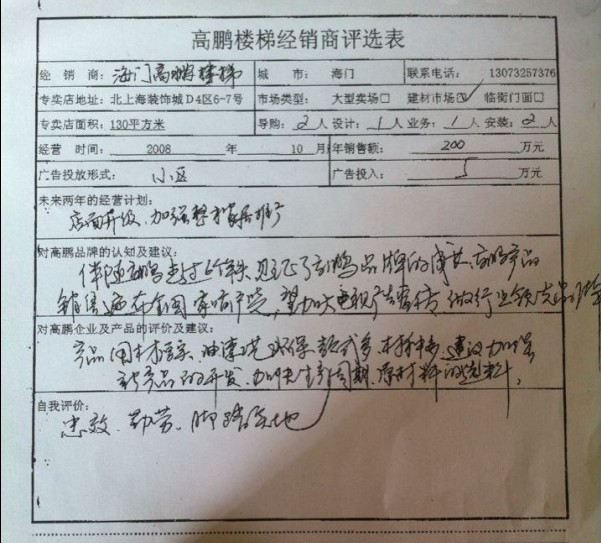 高鹏楼梯经销商评选表
经 销 商: 海门高鹏楼梯 城 市: 海门 联系电话: 13073257376
专卖店地址: 北上海装饰城D4区6-7号 市场类型: 大型卖场□ 建材市场☑ 临街门面□
专卖店面积: 130平方米 导购: 2人 设计: 1人 业务: 1人 安装: 2人
经营 时间: 2008 年 10 月 年销售额: 200 万元
广告投放形式: 小区 广告投入: 5 万元
未来两年的经营计划:
店面升级、加强整木家居推广
对高鹏品牌的认知及建议:
见证了高鹏品牌的 高鹏产品
销售遍布全国 望加大电视广告宣传, 做行业领
对高鹏企业及产品的评价及建议:
产品用材 油漆 环保 款式多 建议加强
新产品的开发、加快生产周期、原材料的选料,
自我评价:
忠效、勤劳、脚踏实地